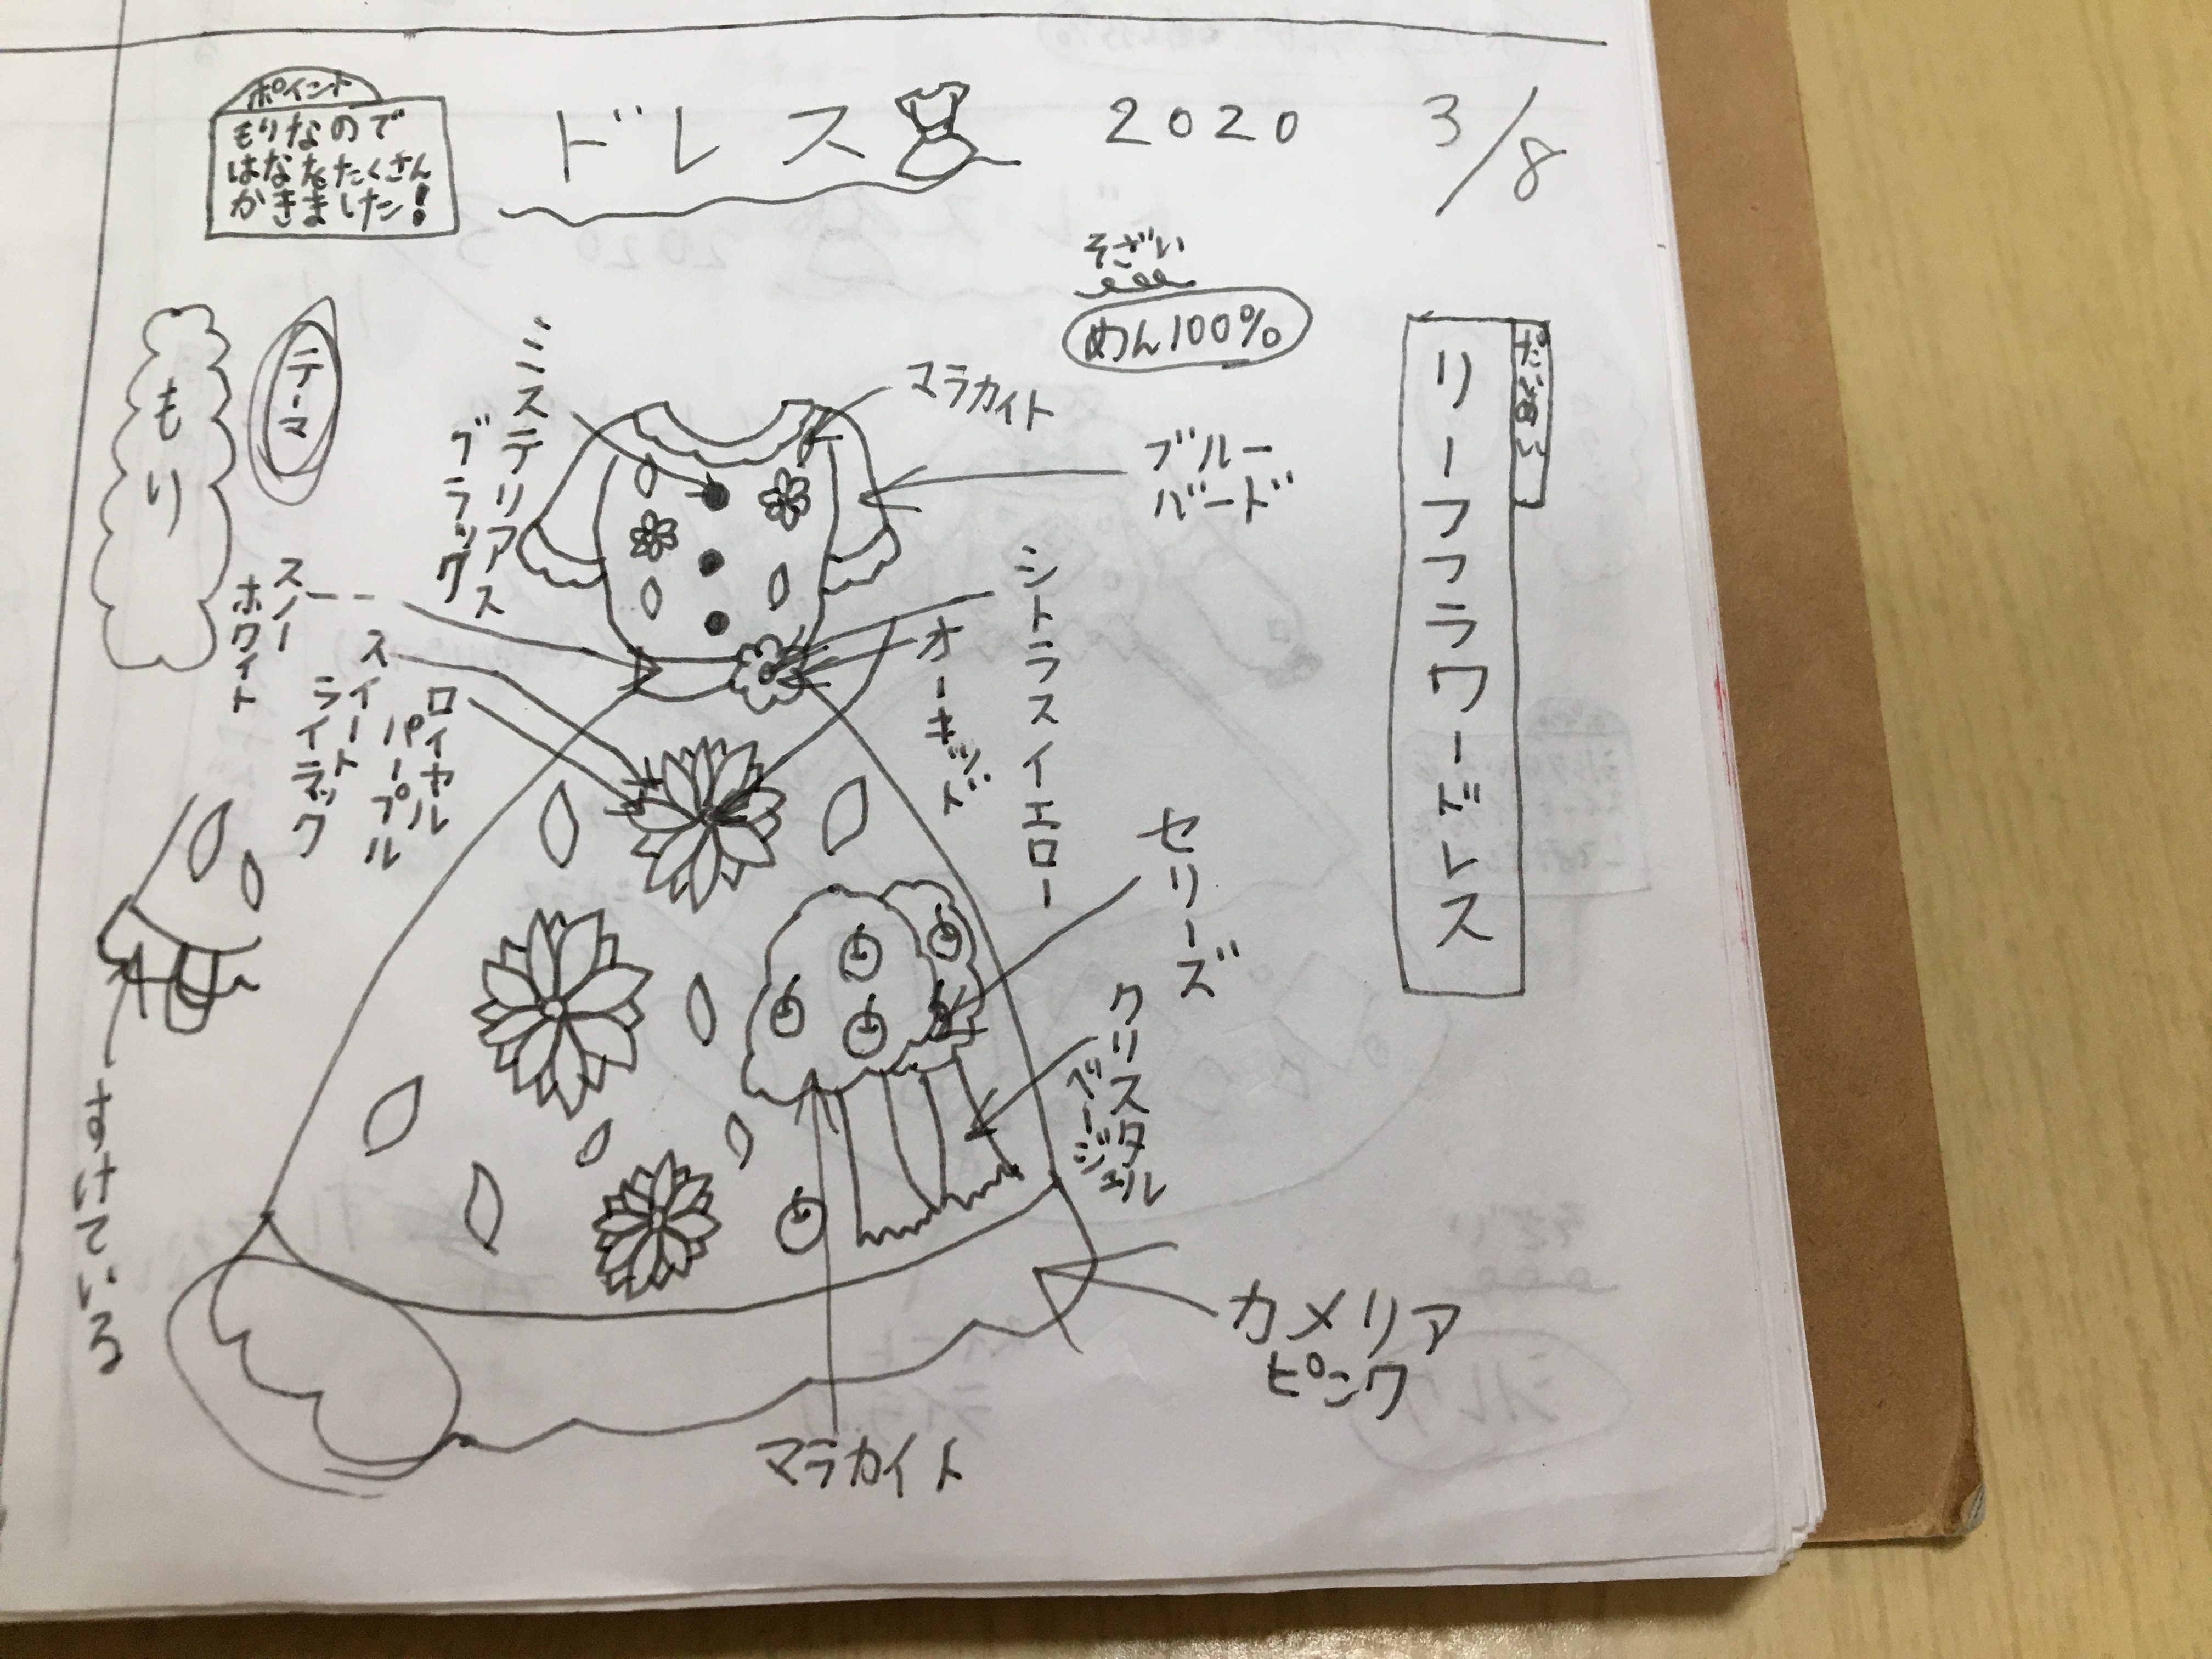 ポイント
もりなので
はなをたくさん
かきました!
ドレス
2020
3/8
そざい
めん100%
だいめい
リーフフラワードレス
テーマ
もり
ミステリアス
ブラック
マラカイト
ブルー
バード
スノー
ホワイト
スイート
ライラック
ロイヤル
パープル
シトラスイエロー
オーキッド
セリーズ
クリスタル
ベージュ
すけている
カメリア
ピンク
マラカイト